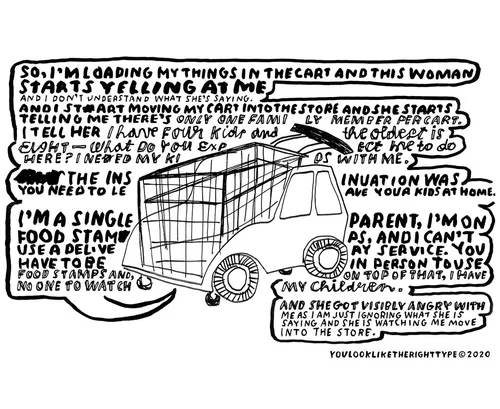 SO, I'M LOADING MY THINGS IN THE CART AND THIS WOMAN
STARTS YELLING AT ME,
AND I DON'T UNDERSTAND WHAT SHE'S SAYING.
AND I START MOVING MY CART INTO THE STORE AND SHE STARTS
TELLING ME THERE'S ONLY ONE FAMI LY MEMBER PER CART.
I TELL HER I have FOUR Kids and the oldest is
EIGHT — WHAT DO YOU EXP ECT ME to do
HERE? I NEEDED MY KI DS WITH ME.
THE INS INUATION WAS
YOU NEED TO LE AVE YOUR KIDS AT HOME.
I'M A SINGLE PARENT, I'M ON
FOOD STAMP PS, AND I CAN'T
USE A DELIVE RY SERVICE. YOU
HAVE TO BE IN PERSON TO USE
FOOD STAMPS AND, ON TOP OF THAT, I HAVE
NO ONE TO WATCH MY children.
AND SHE GOT VISIBLY ANGRY WITH
ME AS I AM JUST IGNORING WHAT SHE IS
SAYING AND SHE IS WATCHING ME MOVE
INTO THE STORE.
YOULOOKLIKETHERIGHTTYPE © 2020